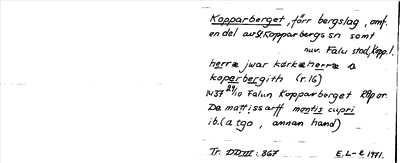 Kopparberget, förr bergslag, omf.
en del av St. Kopparbergs sn samt
nuv. Falu stad, Kopp.l.
herræ jwar kørkæherræ a
koperbergith (r.16)
1437 29/10 Falun Kopparberget RAp or.
De mattissarff montis cupri
ib. (a tgo, annan hand)
Tr. DD III: 867 E.L-e 1971.